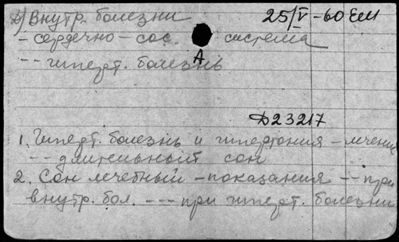 Д) Внутр. болезни 25/V-60 Ем
- сердечно-сос. система
А
-- гиперт. болезнь
Д23217
1. Гиперт. болезнь и гипертония - лечение
-- длительный сон
2. Сон лечебный - показания -- при
внутр. бол. --- при гиперт. болезни